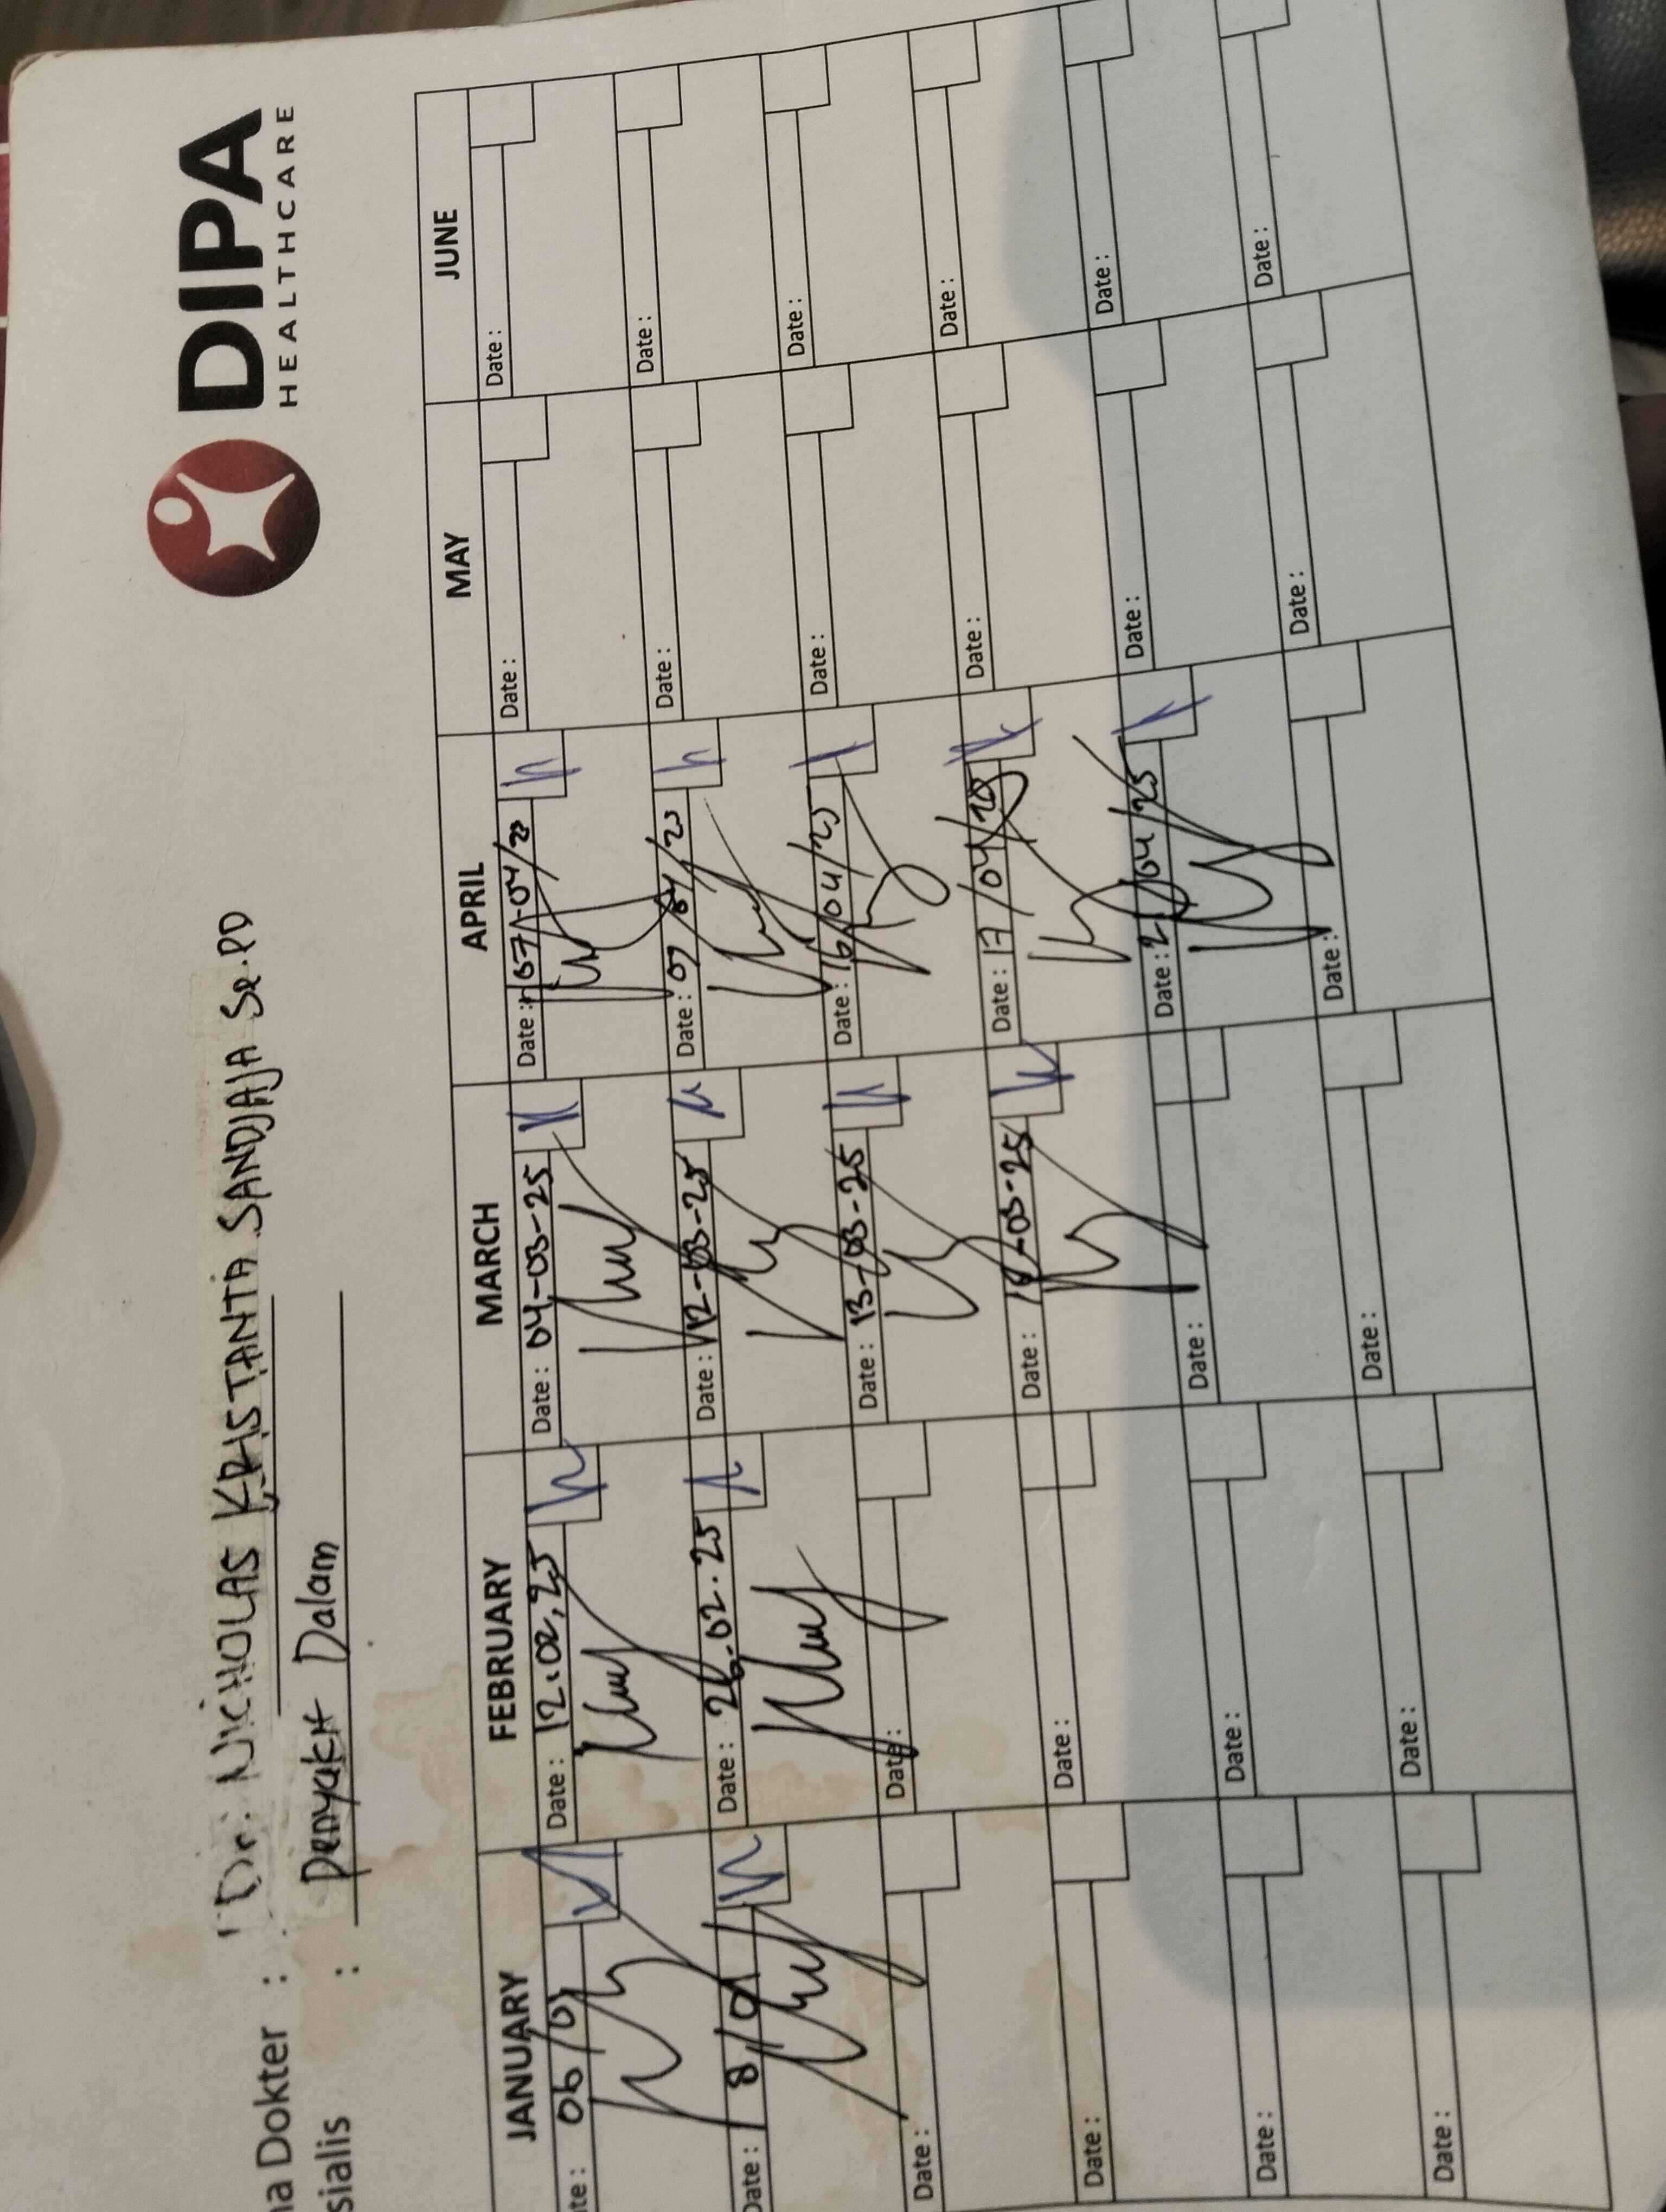 DIPA
HEALTHCARE
a Dokter : Dr. NICHOLAS KRISTANTA SANDJAJA Sp.PD
sialis : Penyakit Dalam
JANUARY FEBRUARY MARCH APRIL MAY JUNE
te: 06/01 Date: 12.02.25 Date: 04-03-25 Date: 07-04/25 Date: Date:
Date: 8/01 Date: 26.02.25 Date: 12-03-25 Date: 09/04/25 Date: Date:
Date: Date: Date: 13-03-25 Date: 16/04/25 Date: Date:
Date: Date: Date: -03-25 Date: 17/04/25 Date: Date:
Date: Date: Date: Date: /04/25 Date: Date:
Date: Date: Date: Date: Date: Date: